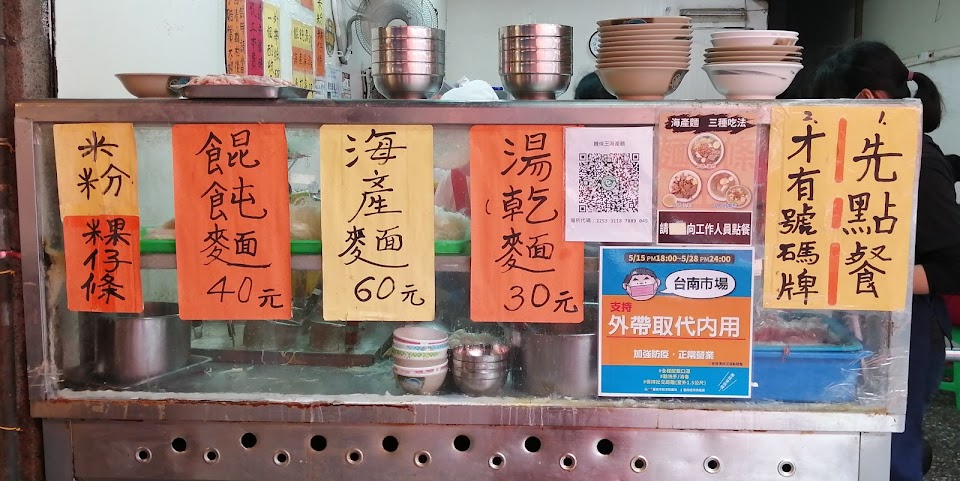 米粉
粿仔條
餛飩麵
40元
海產麵
60元
湯乾麵
30元
場所代碼:
海產麵 三種吃法
請 向工作人員點餐
5/15 PM18:00~5/28 PM24:00
台南市場
支持
外帶取代內用
加強防疫・正常營業
1. 先點餐
2. 才有號碼牌